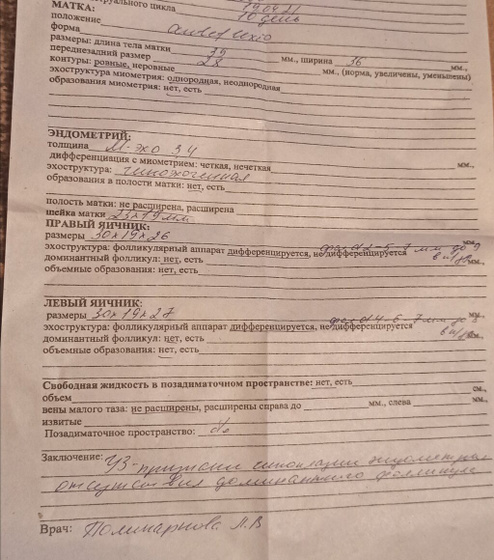 МАТКА: 10 день
положение anteflexio
форма
размеры: длина тела матки 39 мм., ширина 36 мм.,
переднезадний размер 28 мм., (норма, увеличены, уменьшены)
контуры: ровные, неровные
эхоструктура миометрия: однородная, неоднородная
образования миометрия: нет, есть
ЭНДОМЕТРИЙ:
толщина М-эхо 3,4 мм.,
дифференциация с миометрием: четкая, нечеткая
эхоструктура: гипоэхогенная
образования в полости матки: нет, есть
полость матки: не расширена, расширена
шейка матки 23х19 мм
ПРАВЫЙ ЯИЧНИК:
размеры 30х19х26 мм.,
эхоструктура: фолликулярный аппарат дифференцируется, не дифференцируется
доминантный фолликул: нет, есть
объемные образования: нет, есть
ЛЕВЫЙ ЯИЧНИК:
размеры 30х19х27 мм.,
эхоструктура: фолликулярный аппарат дифференцируется, не дифференцируется
доминантный фолликул: нет, есть
объемные образования: нет, есть
Свободная жидкость в позадиматочном пространстве: нет, есть
объем см.,
вены малого таза: не расширены, расширены справа до мм., слева мм.,
извитые
Позадиматочное пространство: б/о
Заключение: УЗ-признаки гипоплазии эндометрия
отсутствия доминантного фолликула
Врач: